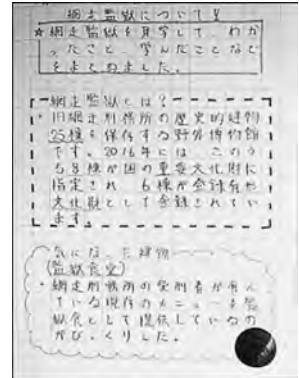 網走監獄について!!
☆網走監獄を見学して、わか
ったこと、学んだことなど
をまとめました。
網走監獄とは?
・旧網走刑務所の歴史的建物
25棟を保存する野外博物館
です。2016年には、このう
ち8棟が国の重要文化財に
指定され、6棟が登録有形
文化財として登録されてい
ます。
気になった建物
(監獄食堂)
・網走刑務所の受刑者が食べ
ている現在のメニューを監
獄食として提供しているの
がびっくりした。